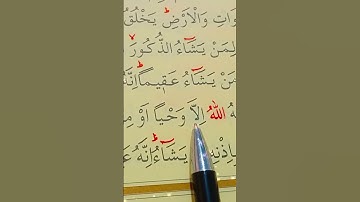 وَاتِ وَالْاَرْضِۜ يَخْلُقُ
لِمَنْ يَشَٓاءُ الذُّكُورَۙ
مَنْ يَشَٓاءُ عَق۪يماًۜ اِنَّهُ
هُ اللّٰهُ اِلَّا وَحْياً اَوْ مِنْ
بِاِذْنِه۪ يَشَٓاءُۜ اِنَّهُ عَ